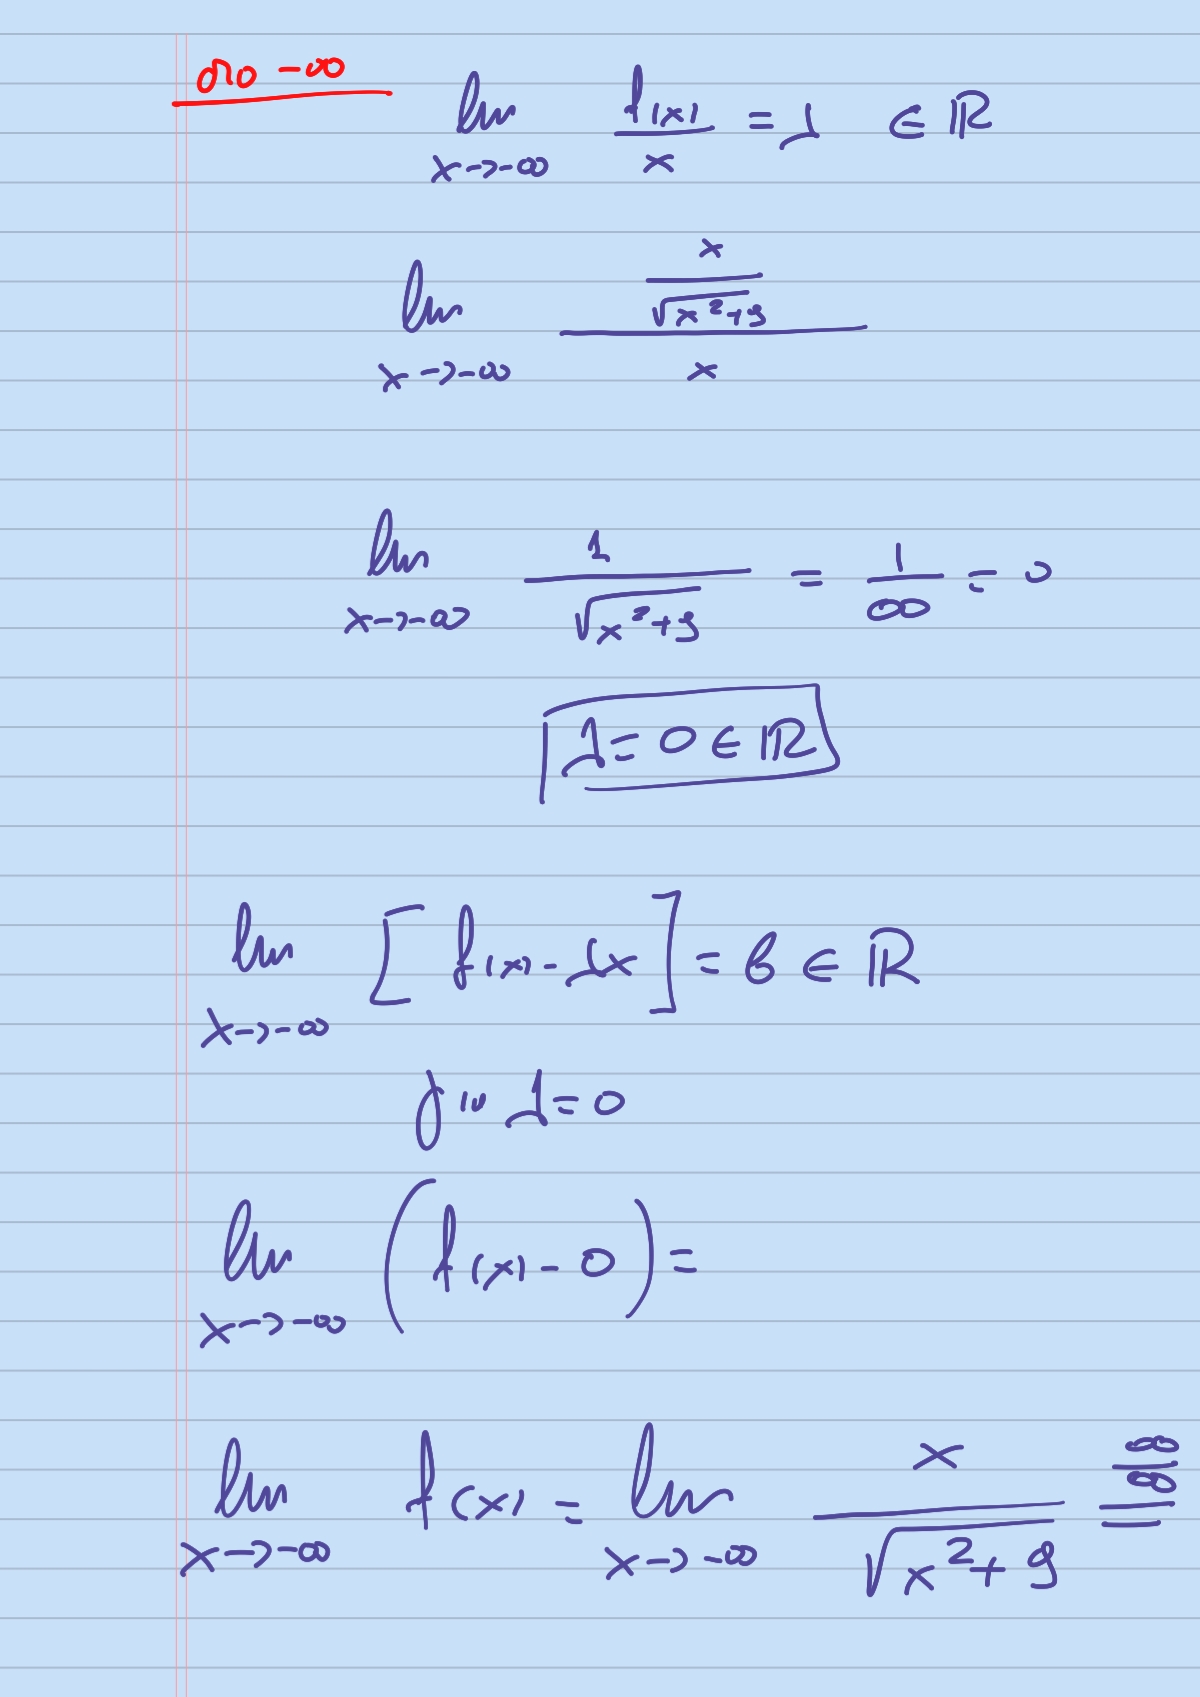 στο -∞
lim x→-∞ f(x)/x = λ ∈ ℝ
lim x→-∞ (x/√(x²+9))/x
lim x→-∞ 1/√(x²+9) = 1/∞ = 0
λ = 0 ∈ ℝ
lim x→-∞ [f(x) - λx] = β ∈ ℝ
για λ = 0
lim x→-∞ (f(x) - 0) =
lim x→-∞ f(x) = lim x→-∞ x/√(x²+9) ∞/∞ =